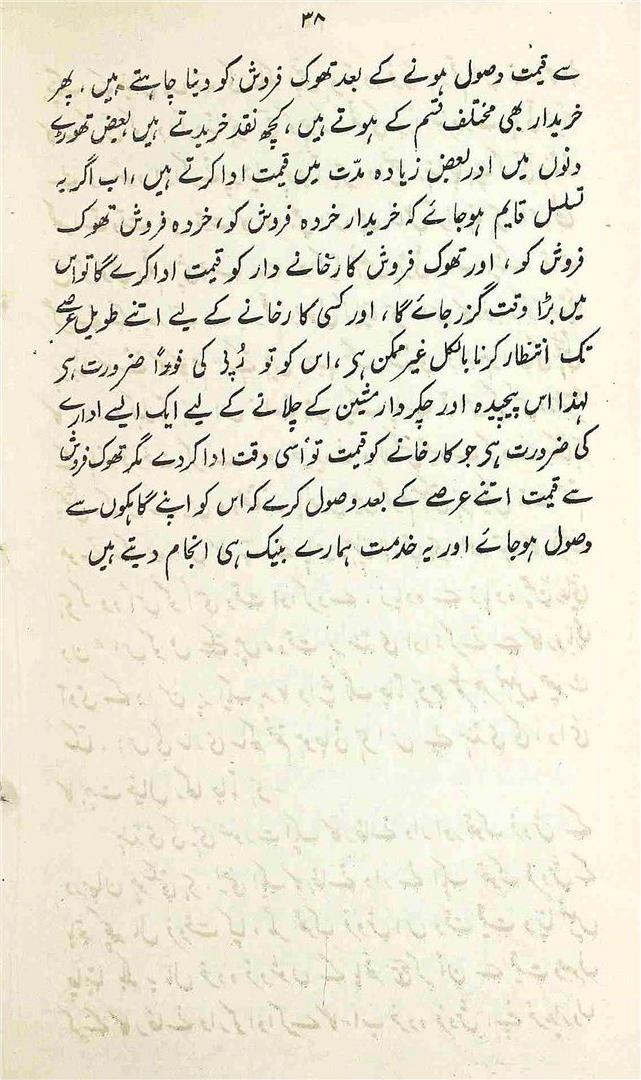 ۳۸
سے قیمت وصول ہونے کے بعد تھوک فروش کو دینا چاہتے ہیں، پھر
خریدار بھی مختلف قسم کے ہوتے ہیں، کچھ نقد خریدتے ہیں بعض تھوڑے
دنوں میں اور بعض زیادہ مدّت میں قیمت ادا کرتے ہیں، اب اگر یہ
تسلسل قایم ہو جائے کہ خریدار خردہ فروش کو، خردہ فروش تھوک
فروش کو، اور تھوک فروش کارخانے دار کو قیمت ادا کرے گا تو اس
میں بڑا وقت گزر جائے گا، اور کسی کارخانے کے لیے اتنے طویل عرصے
تک انتظار کرنا بالکل غیر ممکن ہی، اس کو تو رُپی کی فوراً ضرورت ہی
لہذا اس پیچیدہ اور چکر دار مشین کے چلانے کے لیے ایک ایسے ادارے
کی ضرورت ہی جو کارخانے کو قیمت تو اُسی وقت ادا کردے مگر تھوک فروش
سے قیمت اتنے عرصے کے بعد وصول کرے کہ اس کو اپنے گاہکوں سے
وصول ہو جائے اور یہ خدمت ہمارے بینک ہی انجام دیتے ہیں